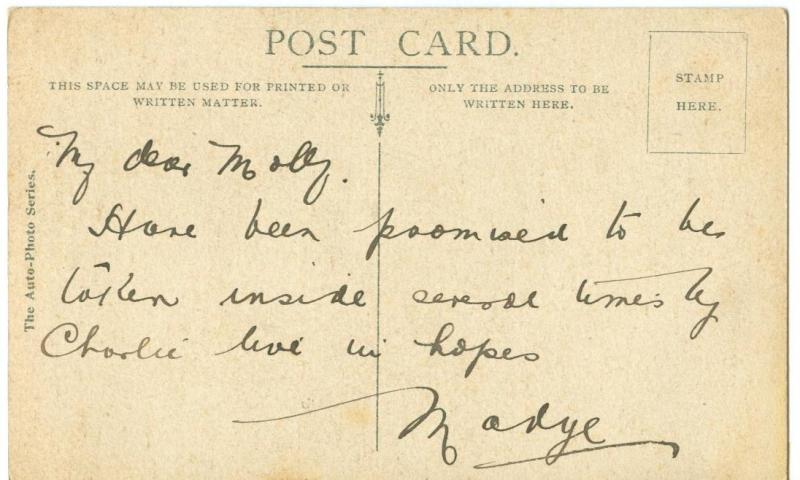 POST CARD.
THIS SPACE MAY BE USED FOR PRINTED OR
WRITTEN MATTER.
ONLY THE ADDRESS TO BE
WRITTEN HERE.
STAMP
HERE.
The Auto-Photo Series.
My dear Molly.
Have been promised to be
taken inside several times by
Charlie live in hopes
Madge